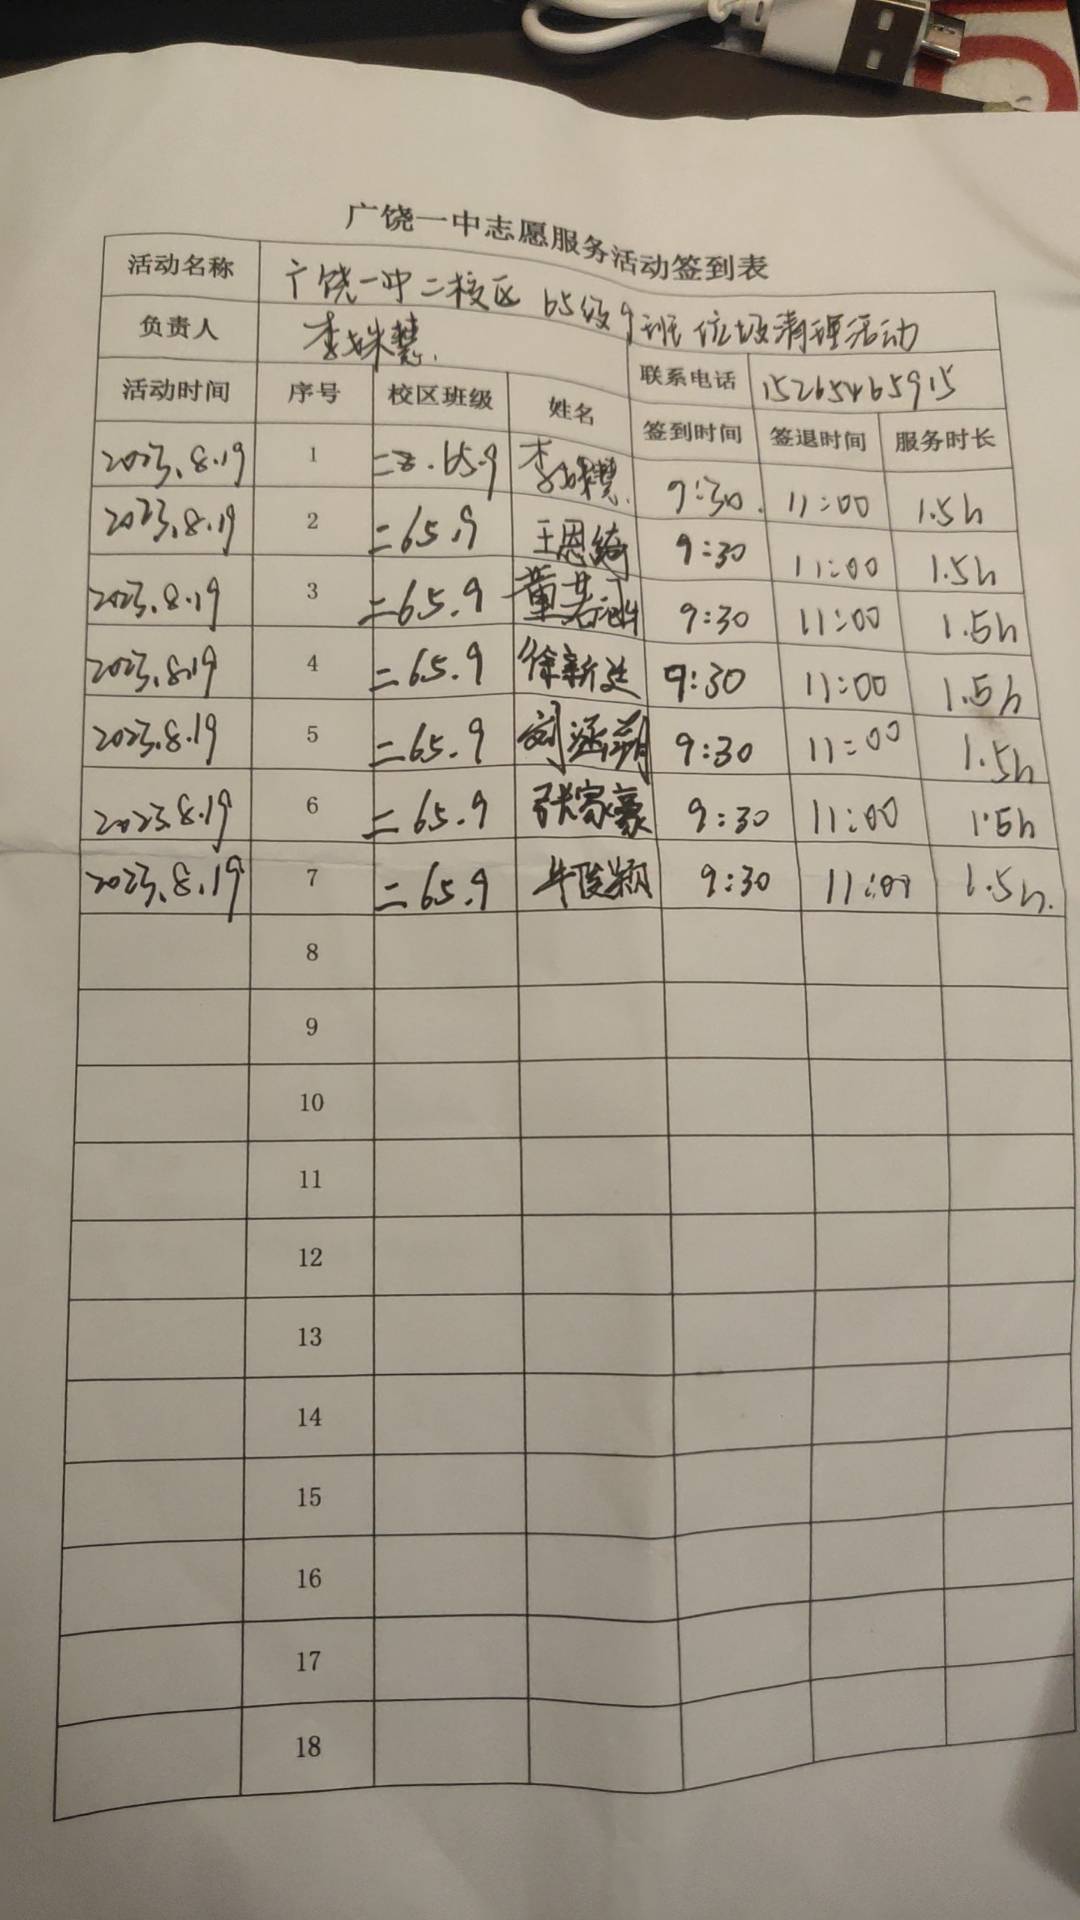 广饶一中志愿服务活动签到表
活动名称 广饶一中二校区 65级9班垃圾清理活动
负责人 李姝慧. 联系电话 15265465915
活动时间 序号 校区班级 姓名 签到时间 签退时间 服务时长
2023.8.19 1 二 65.9 李姝慧. 9:30. 11:00 1.5h
2023.8.19 2 二65.9 王恩绮 9:30 11:00 1.5h
2023.8.19 3 二65.9 董若 9:30 11:00 1.5h
2023.8.19 4 二65.9 徐新廷 9:30 11:00 1.5h
2023.8.19 5 二65.9 刘涵朔 9:30 11:00 1.5h
2023.8.19 6 二65.9 张家豪 9:30 11:00 1.5h
2023.8.19 7 二65.9 牛俊颖 9:30 11:00 1.5h.
8
9
10
11
12
13
14
15
16
17
18